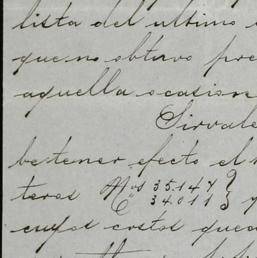 lista del ultimo
que no obtuvo pre
aquella ocasion
Sirvale
be tener efecto el
teras Nos 35.147 }
C° 34.011 } y
cuyos costos queda